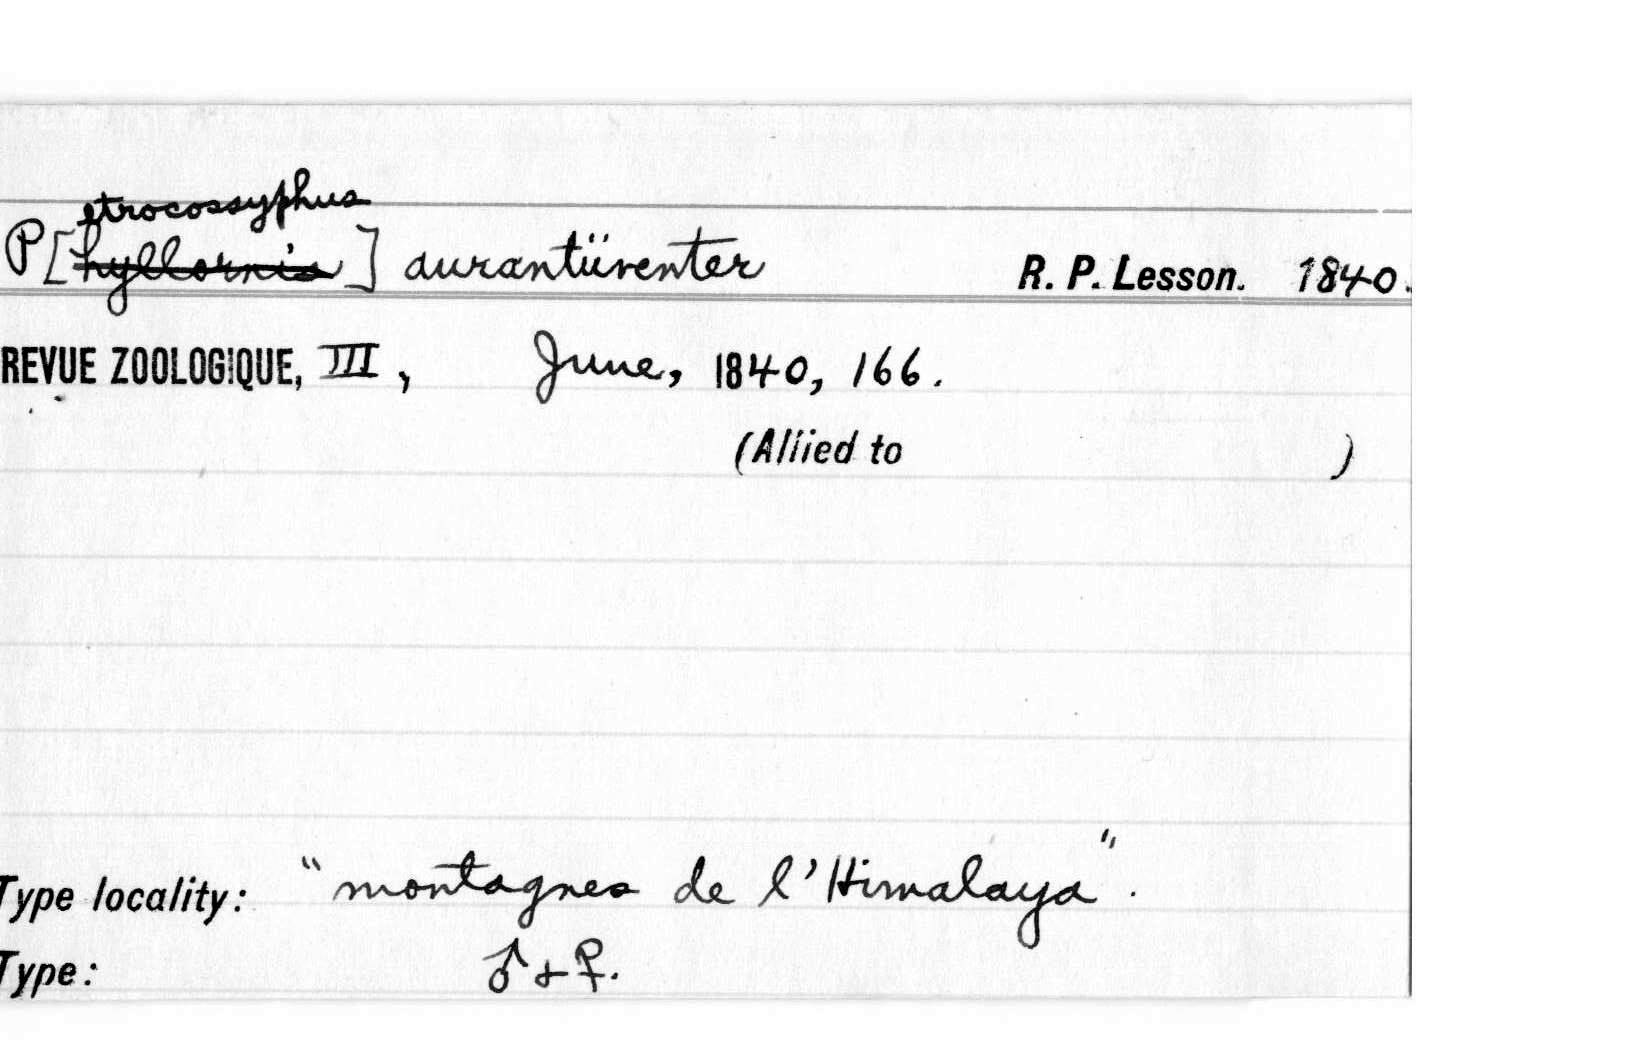 etrocossyphus
P[hyllornis] aurantiiventer R. P. Lesson. 1840.
REVUE ZOOLOGIQUE, III, June, 1840, 166.
(Allied to )
Type locality: "montagnes de l'Himalaya".
Type: ♂ + ♀.